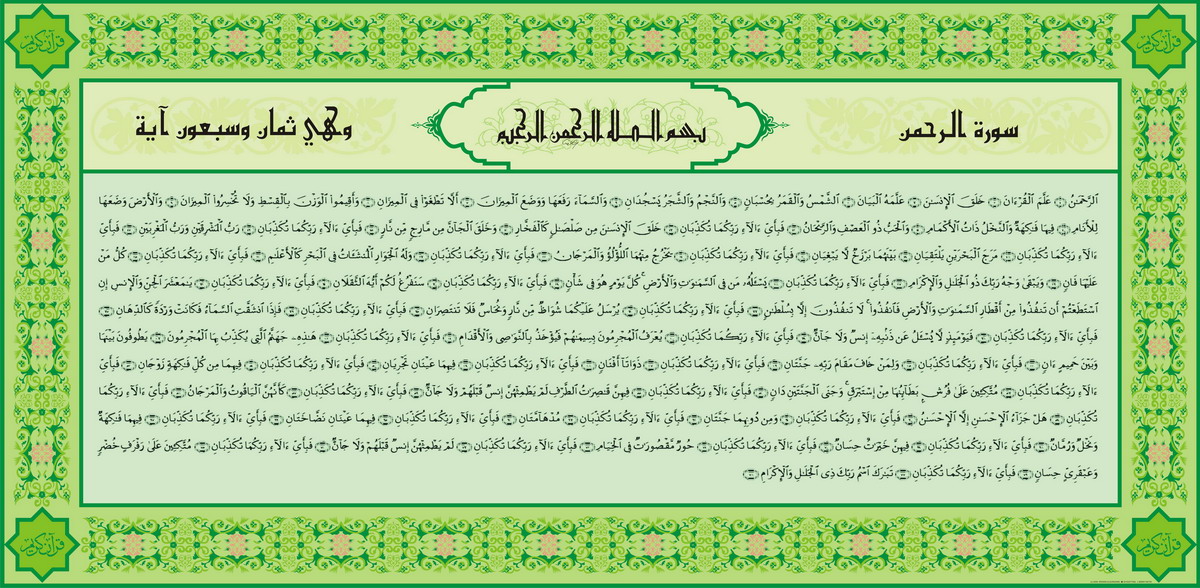 قرآن كريم
قرآن كريم
سورة الرحمن
بسم الله الرحمن الرحيم
وهي ثمان وسبعون آية
ٱلرَّحْمَٰنُ عَلَّمَ ٱلْقُرْءَانَ خَلَقَ ٱلْإِنسَٰنَ عَلَّمَهُ ٱلْبَيَانَ ٱلشَّمْسُ وَٱلْقَمَرُ بِحُسْبَانٍ وَٱلنَّجْمُ وَٱلشَّجَرُ يَسْجُدَانِ وَٱلسَّمَآءَ رَفَعَهَا وَوَضَعَ ٱلْمِيزَانَ أَلَّا تَطْغَوْا۟ فِى ٱلْمِيزَانِ وَأَقِيمُوا۟ ٱلْوَزْنَ بِٱلْقِسْطِ وَلَا تُخْسِرُوا۟ ٱلْمِيزَانَ وَٱلْأَرْضَ وَضَعَهَا
لِلْأَنَامِ فِيهَا فَٰكِهَةٌ وَٱلنَّخْلُ ذَاتُ ٱلْأَكْمَامِ وَٱلْحَبُّ ذُو ٱلْعَصْفِ وَٱلرَّيْحَانُ فَبِأَىِّ ءَالَآءِ رَبِّكُمَا تُكَذِّبَانِ خَلَقَ ٱلْإِنسَٰنَ مِن صَلْصَٰلٍ كَٱلْفَخَّارِ وَخَلَقَ ٱلْجَآنَّ مِن مَّارِجٍ مِّن نَّارٍ فَبِأَىِّ ءَالَآءِ رَبِّكُمَا تُكَذِّبَانِ رَبُّ ٱلْمَشْرِقَيْنِ وَرَبُّ ٱلْمَغْرِبَيْنِ فَبِأَىِّ
ءَالَآءِ رَبِّكُمَا تُكَذِّبَانِ مَرَجَ ٱلْبَحْرَيْنِ يَلْتَقِيَانِ بَيْنَهُمَا بَرْزَخٌ لَّا يَبْغِيَانِ فَبِأَىِّ ءَالَآءِ رَبِّكُمَا تُكَذِّبَانِ يَخْرُجُ مِنْهُمَا ٱللُّؤْلُؤُ وَٱلْمَرْجَانُ فَبِأَىِّ ءَالَآءِ رَبِّكُمَا تُكَذِّبَانِ وَلَهُ ٱلْجَوَارِ ٱلْمُنشَـَٔاتُ فِى ٱلْبَحْرِ كَٱلْأَعْلَٰمِ فَبِأَىِّ ءَالَآءِ رَبِّكُمَا تُكَذِّبَانِ كُلُّ مَنْ
عَلَيْهَا فَانٍ وَيَبْقَىٰ وَجْهُ رَبِّكَ ذُو ٱلْجَلَٰلِ وَٱلْإِكْرَامِ فَبِأَىِّ ءَالَآءِ رَبِّكُمَا تُكَذِّبَانِ يَسْـَٔلُهُۥ مَن فِى ٱلسَّمَٰوَٰتِ وَٱلْأَرْضِ ۚ كُلَّ يَوْمٍ هُوَ فِى شَأْنٍ فَبِأَىِّ ءَالَآءِ رَبِّكُمَا تُكَذِّبَانِ سَنَفْرُغُ لَكُمْ أَيُّهَ ٱلثَّقَلَانِ فَبِأَىِّ ءَالَآءِ رَبِّكُمَا تُكَذِّبَانِ يَٰمَعْشَرَ ٱلْجِنِّ وَٱلْإِنسِ إِنِ
ٱسْتَطَعْتُمْ أَن تَنفُذُوا۟ مِنْ أَقْطَارِ ٱلسَّمَٰوَٰتِ وَٱلْأَرْضِ فَٱنفُذُوا۟ ۚ لَا تَنفُذُونَ إِلَّا بِسُلْطَٰنٍ فَبِأَىِّ ءَالَآءِ رَبِّكُمَا تُكَذِّبَانِ يُرْسَلُ عَلَيْكُمَا شُوَاظٌ مِّن نَّارٍ وَنُحَاسٌ فَلَا تَنتَصِرَانِ فَبِأَىِّ ءَالَآءِ رَبِّكُمَا تُكَذِّبَانِ فَإِذَا ٱنشَقَّتِ ٱلسَّمَآءُ فَكَانَتْ وَرْدَةً كَٱلدِّهَانِ
فَبِأَىِّ ءَالَآءِ رَبِّكُمَا تُكَذِّبَانِ فَيَوْمَئِذٍ لَّا يُسْـَٔلُ عَن ذَنۢبِهِۦٓ إِنسٌ وَلَا جَآنٌّ فَبِأَىِّ ءَالَآءِ رَبِّكُمَا تُكَذِّبَانِ يُعْرَفُ ٱلْمُجْرِمُونَ بِسِيمَٰهُمْ فَيُؤْخَذُ بِٱلنَّوَٰصِى وَٱلْأَقْدَامِ فَبِأَىِّ ءَالَآءِ رَبِّكُمَا تُكَذِّبَانِ هَٰذِهِۦ جَهَنَّمُ ٱلَّتِى يُكَذِّبُ بِهَا ٱلْمُجْرِمُونَ يَطُوفُونَ بَيْنَهَا
وَبَيْنَ حَمِيمٍ ءَانٍ فَبِأَىِّ ءَالَآءِ رَبِّكُمَا تُكَذِّبَانِ وَلِمَنْ خَافَ مَقَامَ رَبِّهِۦ جَنَّتَانِ فَبِأَىِّ ءَالَآءِ رَبِّكُمَا تُكَذِّبَانِ ذَوَاتَآ أَفْنَانٍ فَبِأَىِّ ءَالَآءِ رَبِّكُمَا تُكَذِّبَانِ فِيهِمَا عَيْنَانِ تَجْرِيَانِ فَبِأَىِّ ءَالَآءِ رَبِّكُمَا تُكَذِّبَانِ فِيهِمَا مِن كُلِّ فَٰكِهَةٍ زَوْجَانِ فَبِأَىِّ
ءَالَآءِ رَبِّكُمَا تُكَذِّبَانِ مُتَّكِـِٔينَ عَلَىٰ فُرُشٍۭ بَطَآئِنُهَا مِنْ إِسْتَبْرَقٍ ۚ وَجَنَى ٱلْجَنَّتَيْنِ دَانٍ فَبِأَىِّ ءَالَآءِ رَبِّكُمَا تُكَذِّبَانِ فِيهِنَّ قَٰصِرَٰتُ ٱلطَّرْفِ لَمْ يَطْمِثْهُنَّ إِنسٌ قَبْلَهُمْ وَلَا جَآنٌّ فَبِأَىِّ ءَالَآءِ رَبِّكُمَا تُكَذِّبَانِ كَأَنَّهُنَّ ٱلْيَاقُوتُ وَٱلْمَرْجَانُ فَبِأَىِّ ءَالَآءِ رَبِّكُمَا
تُكَذِّبَانِ هَلْ جَزَآءُ ٱلْإِحْسَٰنِ إِلَّا ٱلْإِحْسَٰنُ فَبِأَىِّ ءَالَآءِ رَبِّكُمَا تُكَذِّبَانِ وَمِن دُونِهِمَا جَنَّتَانِ فَبِأَىِّ ءَالَآءِ رَبِّكُمَا تُكَذِّبَانِ مُدْهَآمَّتَانِ فَبِأَىِّ ءَالَآءِ رَبِّكُمَا تُكَذِّبَانِ فِيهِمَا عَيْنَانِ نَضَّاخَتَانِ فَبِأَىِّ ءَالَآءِ رَبِّكُمَا تُكَذِّبَانِ فِيهِمَا فَٰكِهَةٌ
وَنَخْلٌ وَرُمَّانٌ فَبِأَىِّ ءَالَآءِ رَبِّكُمَا تُكَذِّبَانِ فِيهِنَّ خَيْرَٰتٌ حِسَانٌ فَبِأَىِّ ءَالَآءِ رَبِّكُمَا تُكَذِّبَانِ حُورٌ مَّقْصُورَٰتٌ فِى ٱلْخِيَامِ فَبِأَىِّ ءَالَآءِ رَبِّكُمَا تُكَذِّبَانِ لَمْ يَطْمِثْهُنَّ إِنسٌ قَبْلَهُمْ وَلَا جَآنٌّ فَبِأَىِّ ءَالَآءِ رَبِّكُمَا تُكَذِّبَانِ مُتَّكِـِٔينَ عَلَىٰ رَفْرَفٍ خُضْرٍ
وَعَبْقَرِىٍّ حِسَانٍ فَبِأَىِّ ءَالَآءِ رَبِّكُمَا تُكَذِّبَانِ تَبَٰرَكَ ٱسْمُ رَبِّكَ ذِى ٱلْجَلَٰلِ وَٱلْإِكْرَامِ
قرآن كريم
قرآن كريم